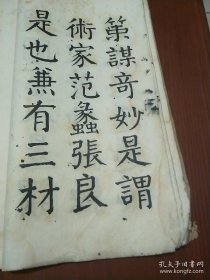 策謀奇妙是謂
術家范蠡張良
是也兼有三材
孔夫子旧书网